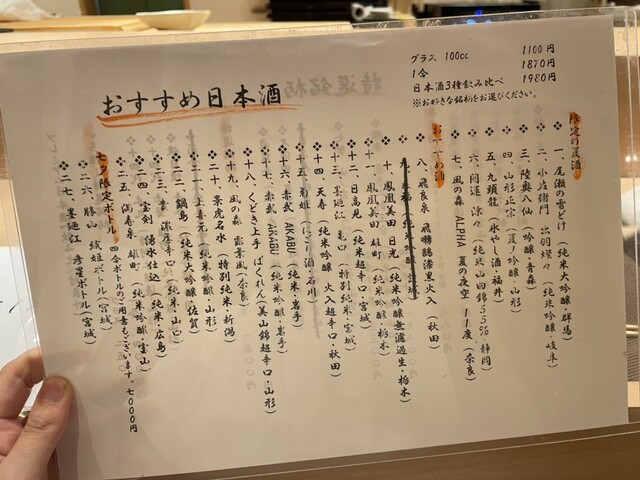 おすすめ日本酒
グラス 100cc 1100円
1合 1870円
日本酒3種飲み比べ 1980円
※お好きな銘柄をお選びください。
限定の夏酒
一、尾瀬の雪どけ (純米大吟醸・群馬)
二、小左衛門 出羽燦々 (純米吟醸・岐阜)
三、陸奥八仙 (吟醸・青森)
四、山形正宗 (夏ノ吟醸・山形)
五、九頭龍 (氷やし酒・福井)
六、開運 涼々 (純米山田錦55%・静岡)
七、風の森 ALPHA 夏の夜空 11度 (奈良)
おすすめ酒
八、飛良泉 飛囀鵠 漆黒火入 (秋田)
十、鳳凰美田 日光 (純米吟醸無濾過生・栃木)
十一、鳳凰美田 雄町 (純米吟醸・栃木)
十二、日高見 (純米超辛口・宮城)
十三、墨廼江 亀口 (特別純米・宮城)
十四、天寿 (純米吟醸 火入超辛口・秋田)
十五、菊姫 (にごり酒・石川)
十六、赤武 AKABU (純米・岩手)
十七、赤武 AKABU (純米吟醸・岩手)
十八、くどき上手 ばくれん (美山錦超辛口・山形)
十九、風の森 露葉風 (奈良)
二十、景虎名水 (特別純米・新潟)
二一、上喜元 (純米吟醸・山形)
二二、鍋島 (純米大吟醸・佐賀)
二三、貴 濃醇辛口 (純米・山口)
二四、宝剣 湧水仕込 (純米・広島)
二五、満寿泉 雄町 (純米吟醸・富山)
七夕限定ボトル
四合ボトルのご用意もございます。七000円
二六、勝山 織姫ボトル (宮城)
二七、墨廼江 彦星ボトル (宮城)